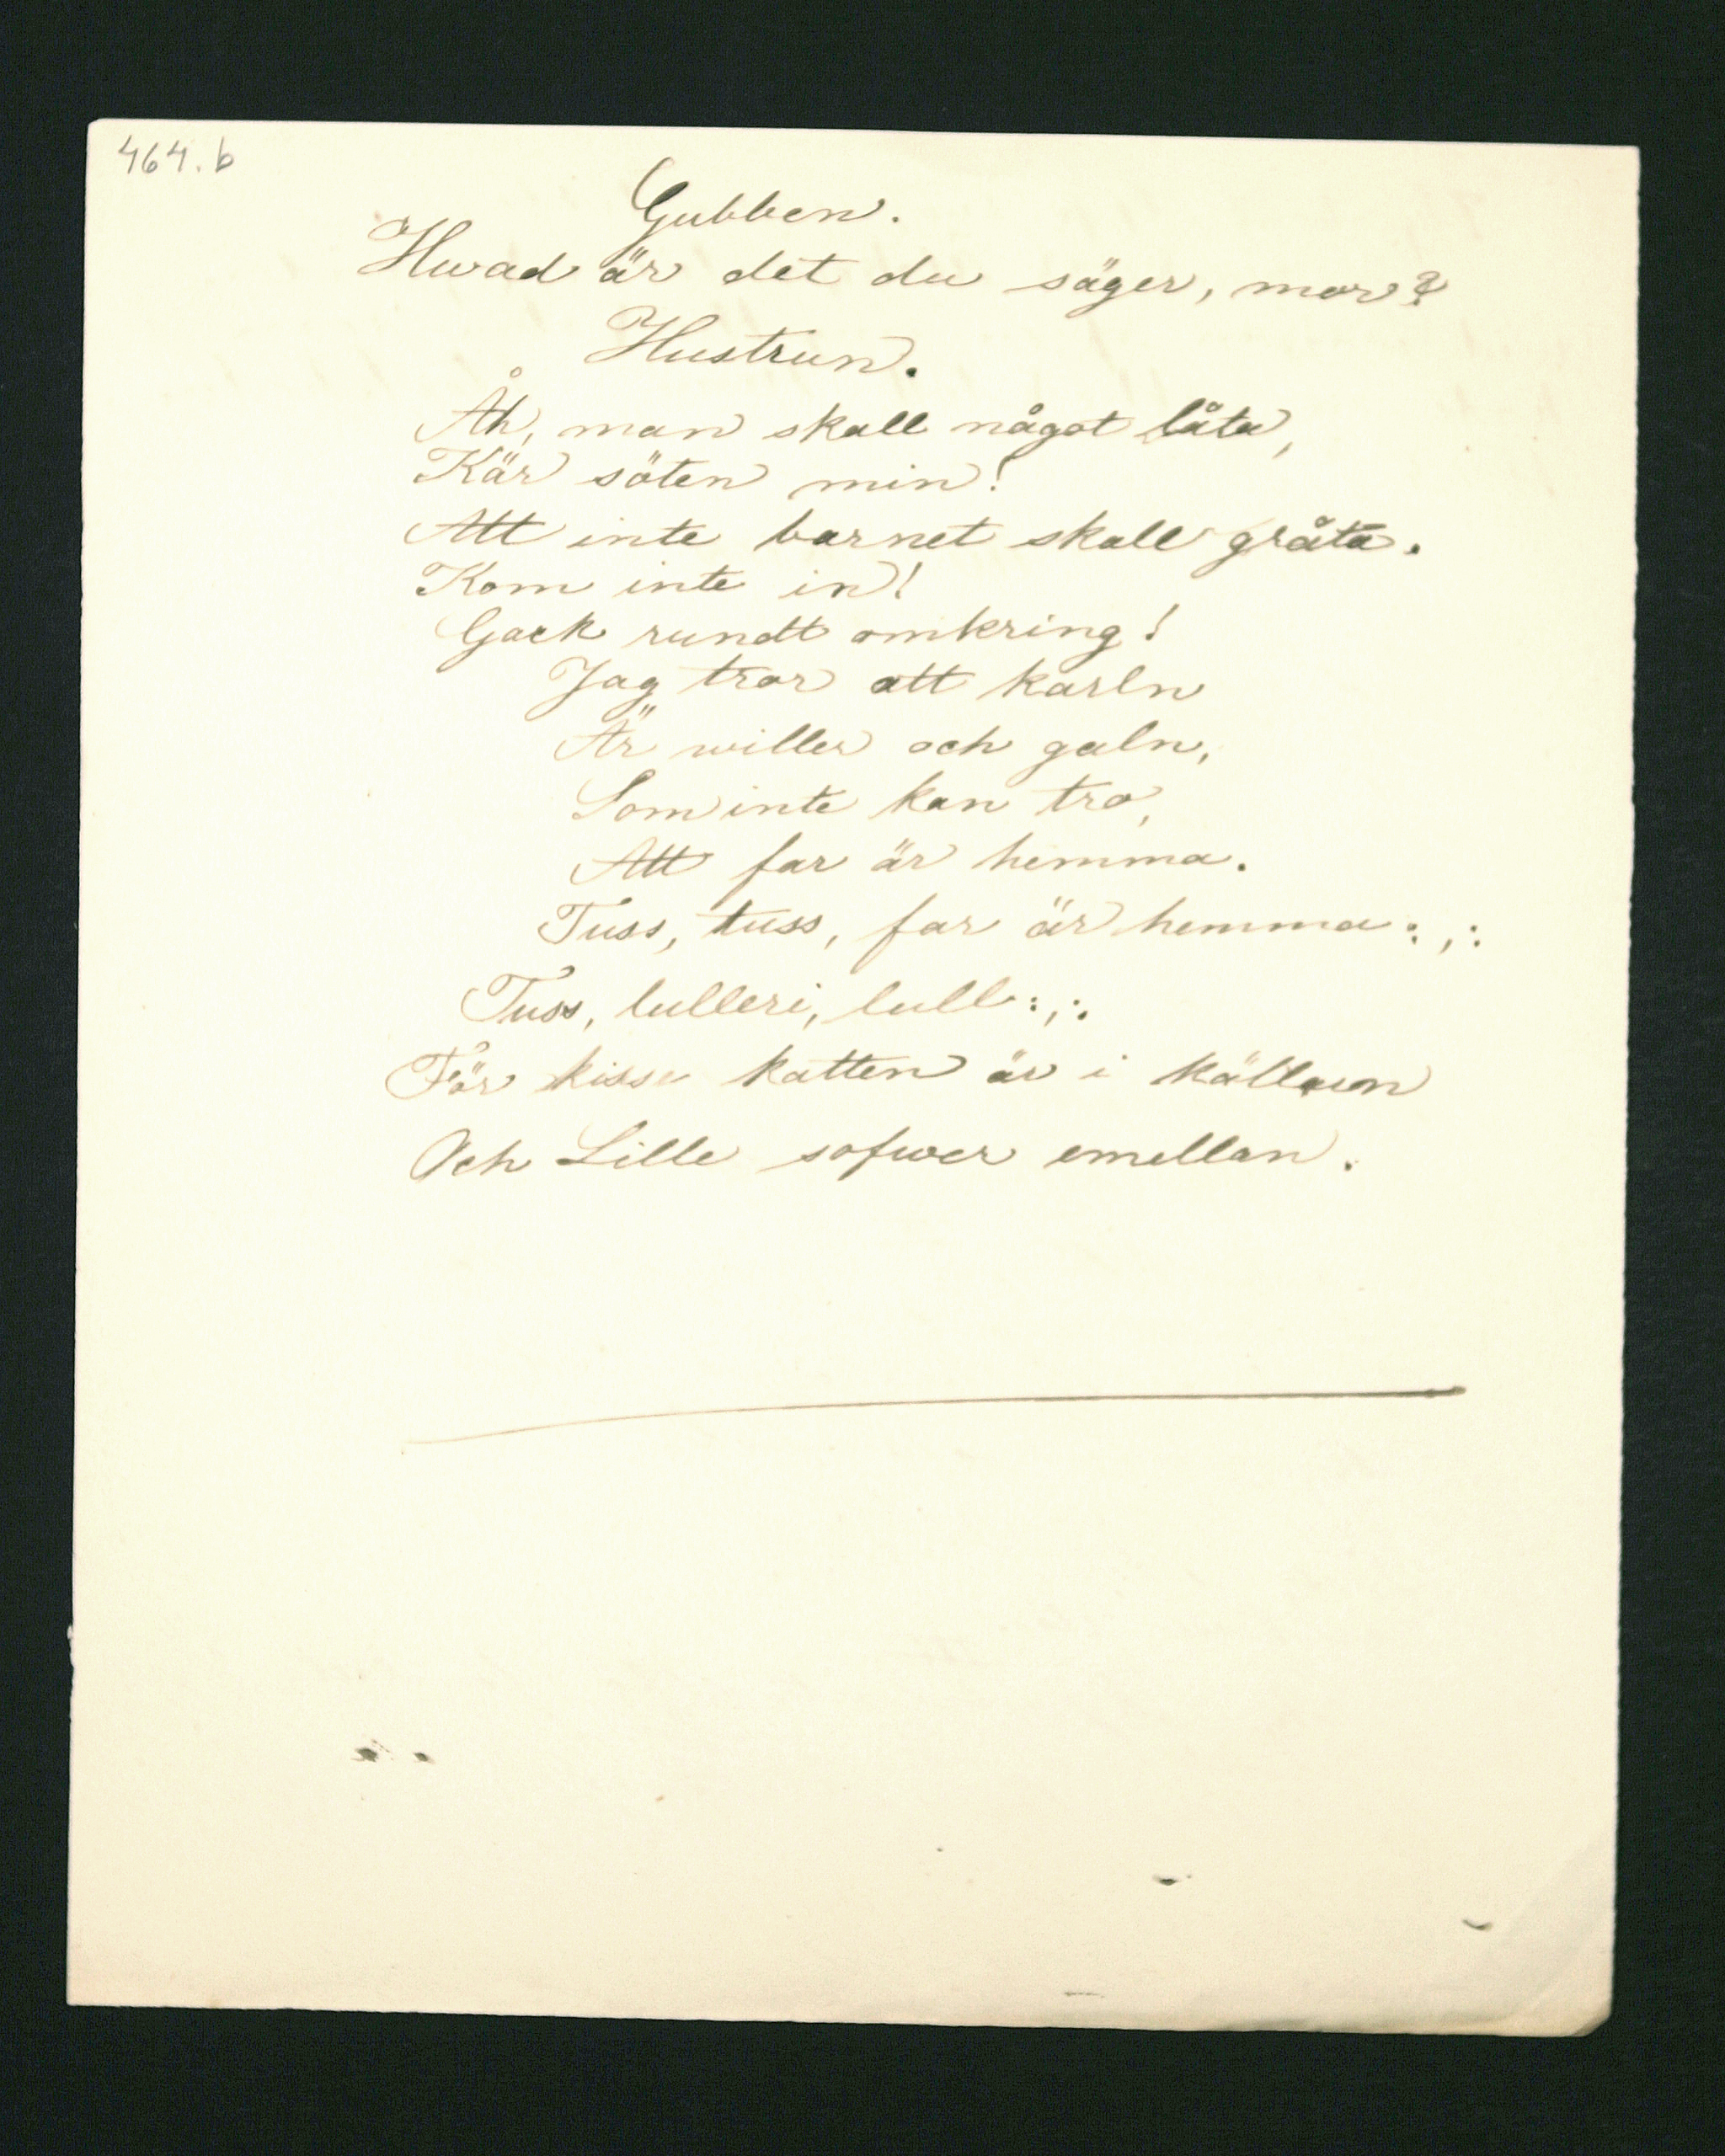 464.b
Gubben.
Hwad är det du säger, mor?
Hustrun.
Åh, man skall något låta,
Kär söten min!
Att inte barnet skall gråta.
Kom inte in!
Gack rundt omkring!
Jag tror att karln
Är willer och galn,
Som inte kan tro,
Att far är hemma.
Tuss, tuss, far är hemma :,:
Tuss, lulleri, lull :,:
För kisse katten är i källaren
Och Lille sofwer emellan.